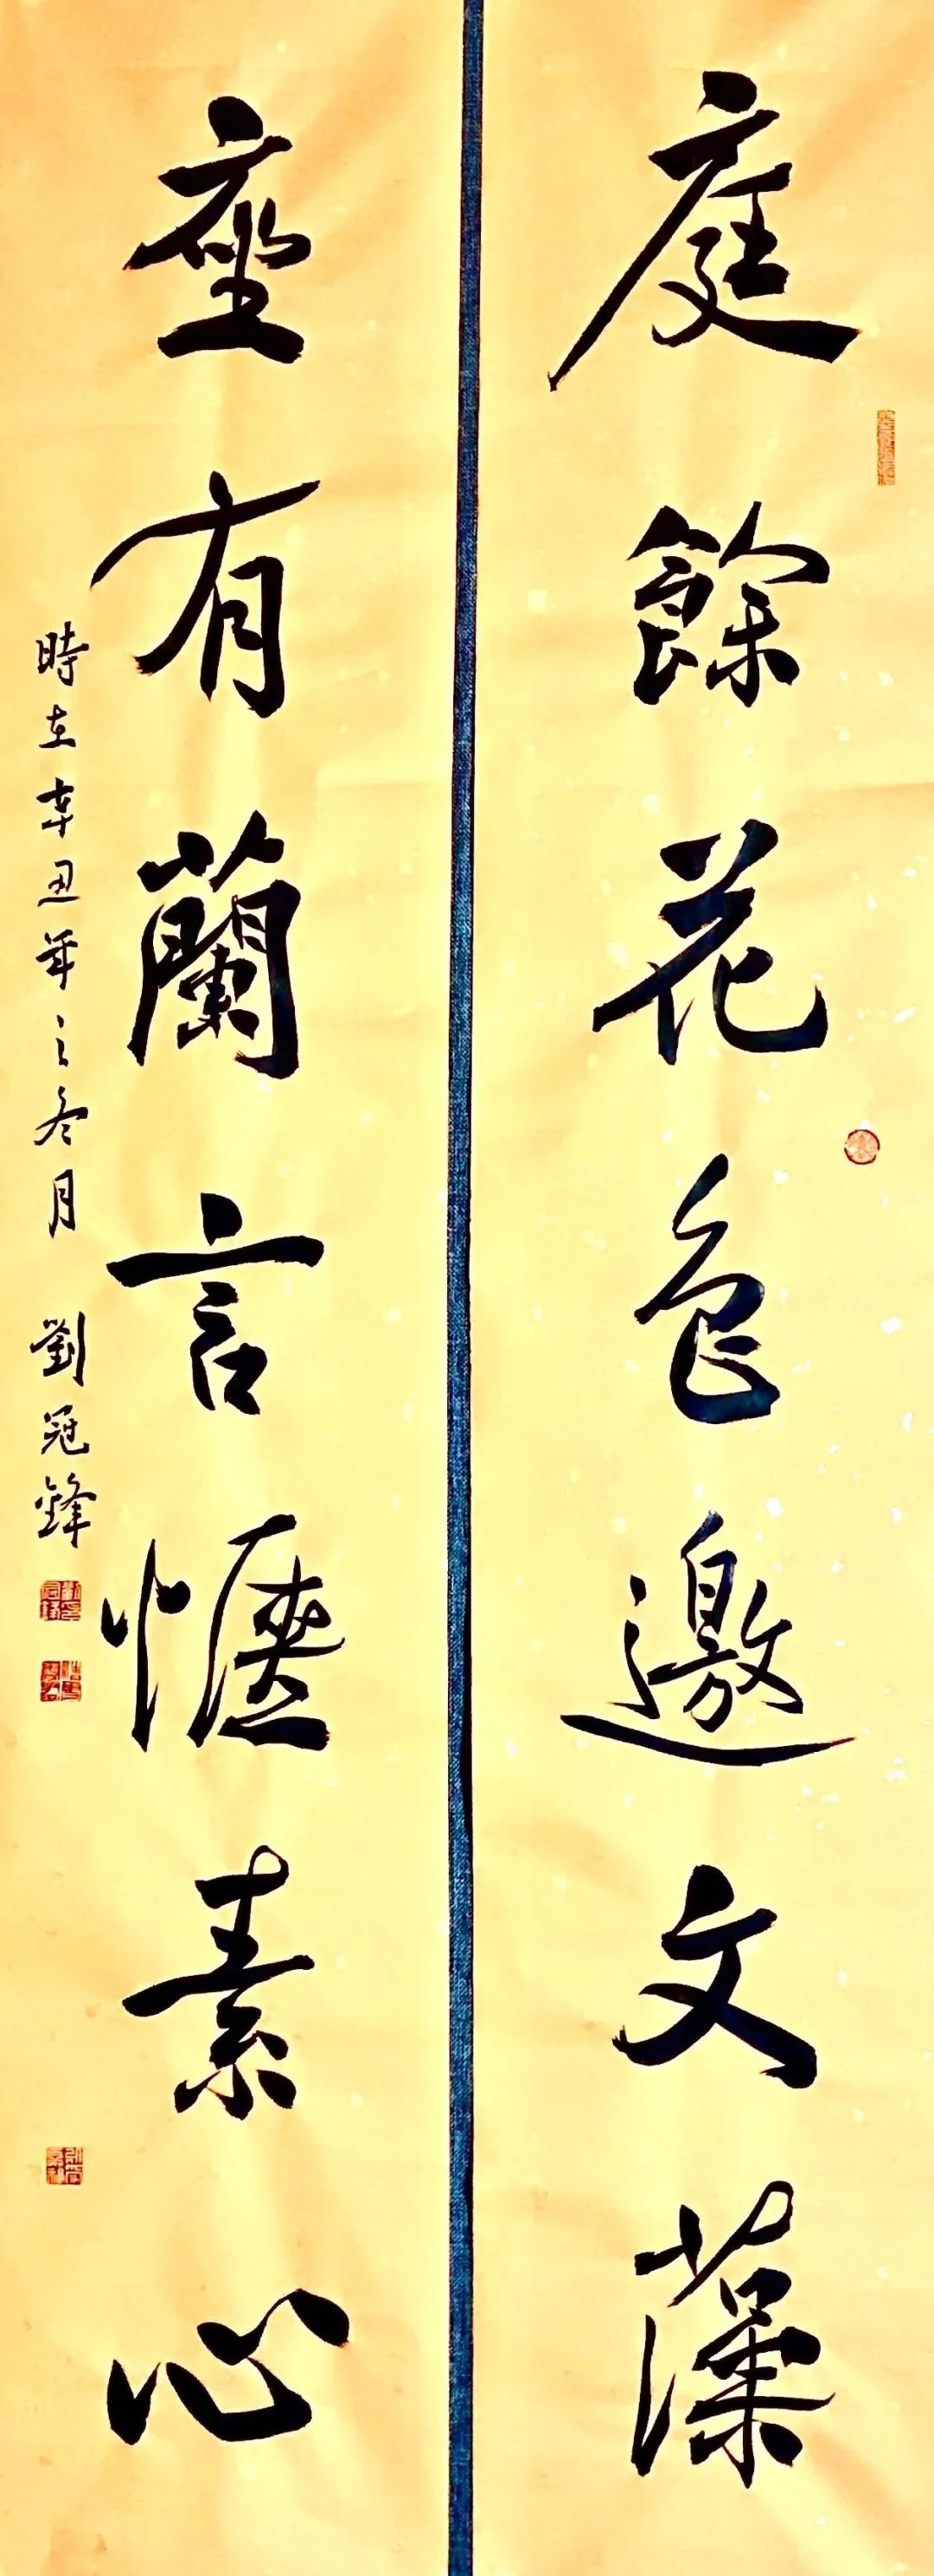 庭餘花色邀文藻
座有蘭言愜素心
時在辛丑年之冬月 劉冠鋒